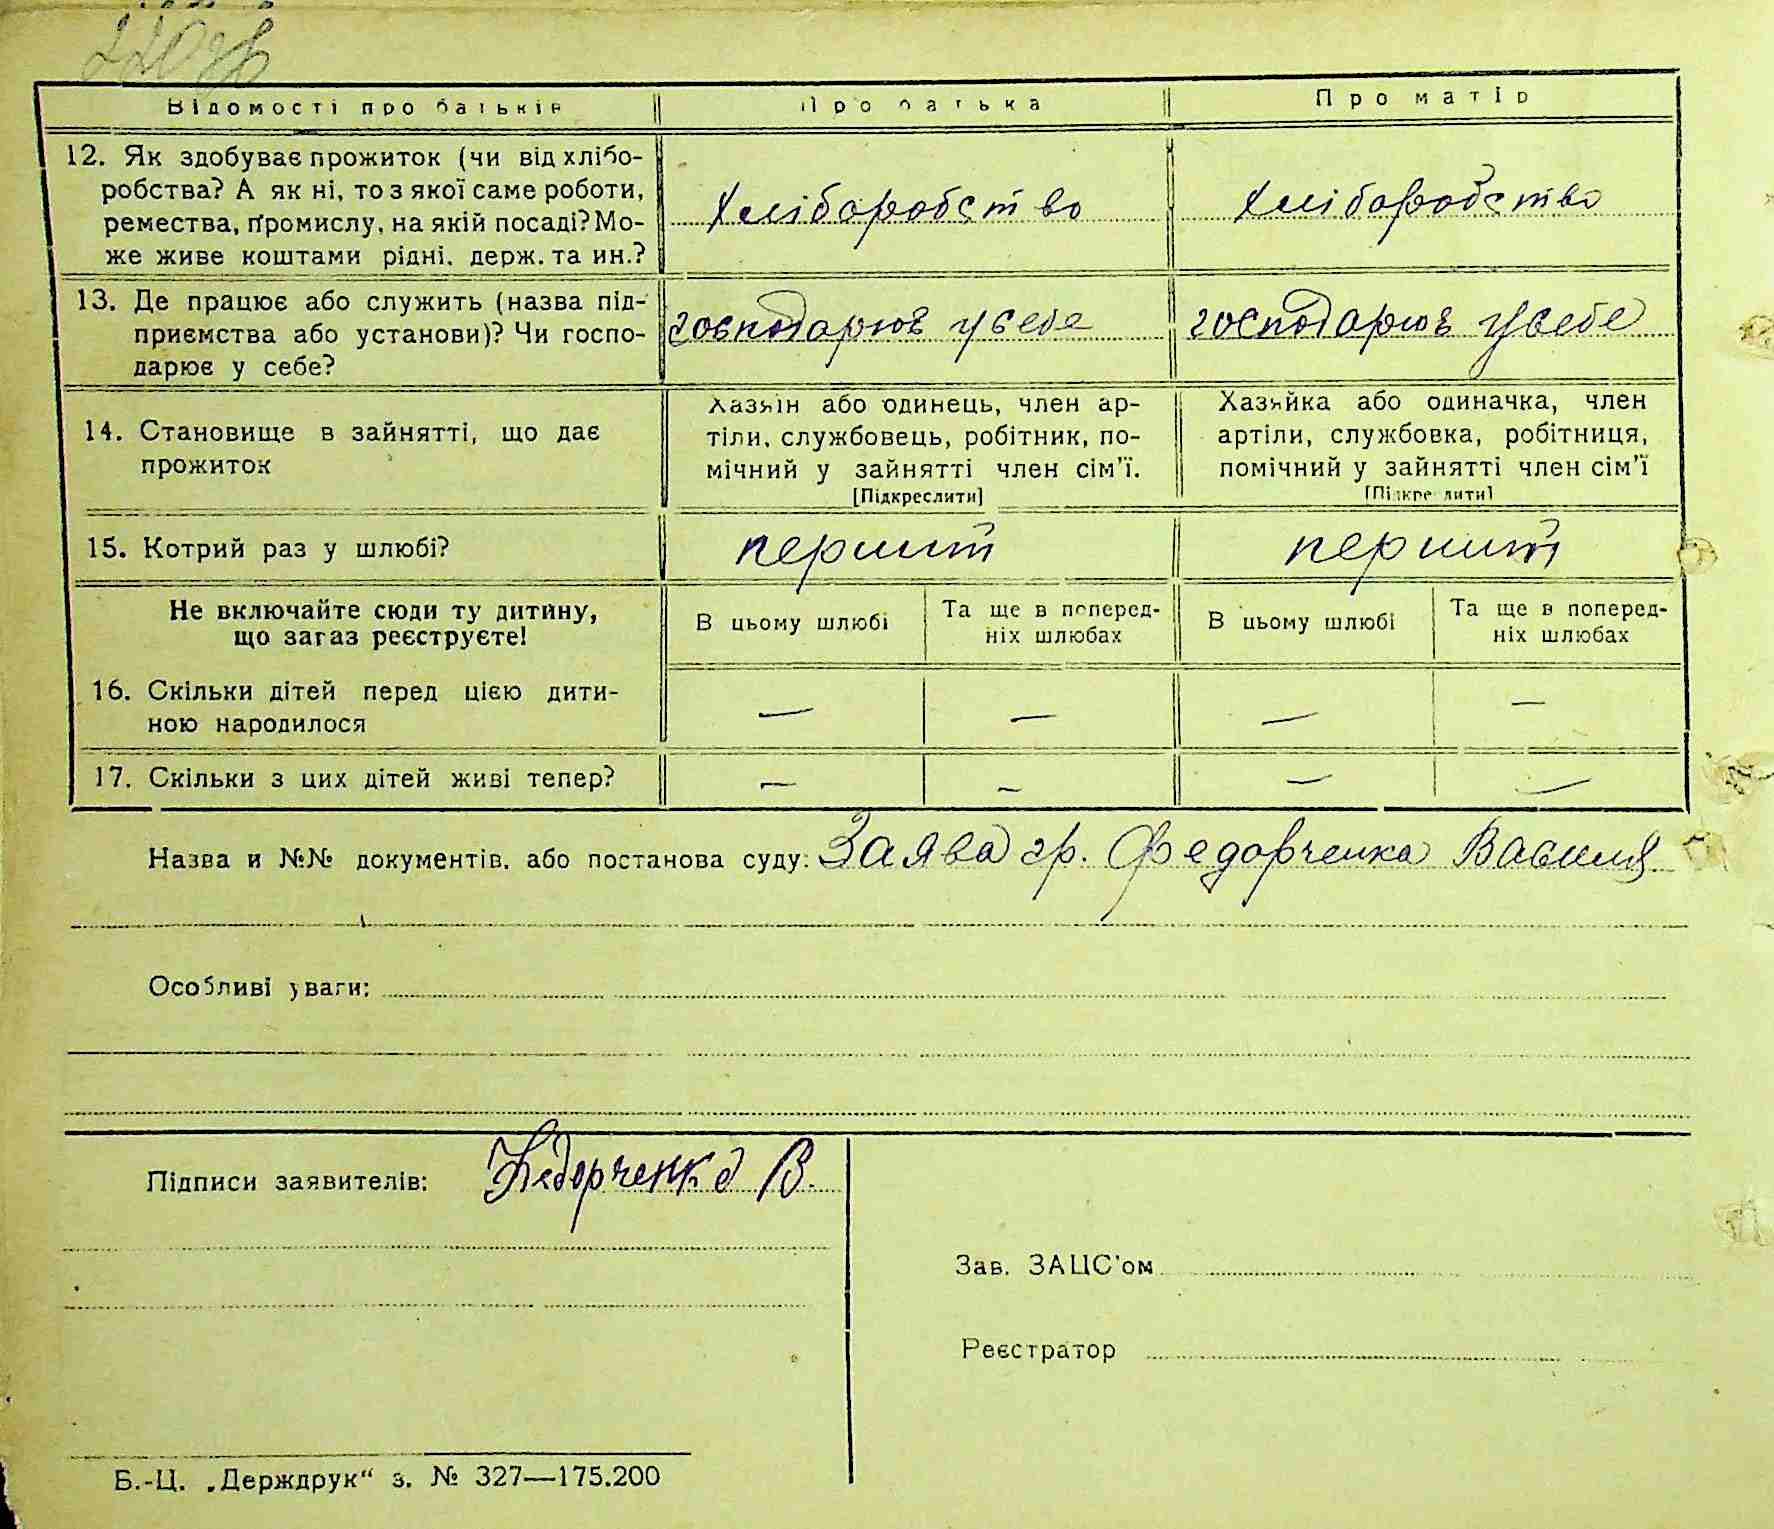 220зв
Відомості про батьків
Про батька
Про матір
12. Як здобуває прожиток (чи від хлібо-
робства? А як ні, то з якої саме роботи,
ремества, промислу, на якій посаді? Мо-
же живе коштами рідні, держ. та ин.?
Хліборобство
Хліборобство
13. Де працює або служить (назва під-
приємства або установи)? Чи госпо-
дарює у себе?
господарює у себе
господарює у себе
14. Становище в зайнятті, що дає
прожиток
Хазяїн або одинець, член ар-
тіли, службовець, робітник, по-
мічний у зайнятті член сім'ї.
[Підкреслити]
Хазяйка або одиначка, член
артіли, службовка, робітниця,
помічний у зайнятті член сім'ї
[Підкреслити]
15. Котрий раз у шлюбі?
перший
перший
Не включайте сюди ту дитину,
що зараз реєструєте!
В цьому шлюбі
Та ще в поперед-
ніх шлюбах
В цьому шлюбі
Та ще в поперед-
ніх шлюбах
16. Скільки дітей перед цією дити-
ною народилося
— — — —
17. Скільки з цих дітей живі тепер?
— — — —
Назва и №№ документів, або постанова суду: Заява гр. Федорченка Василя
Особливі уваги:
Підписи заявителів: Федорченко В.
Зав. ЗАЦС'ом
Реєстратор
Б.-Ц. „Держдрук“ з. № 327—175.200